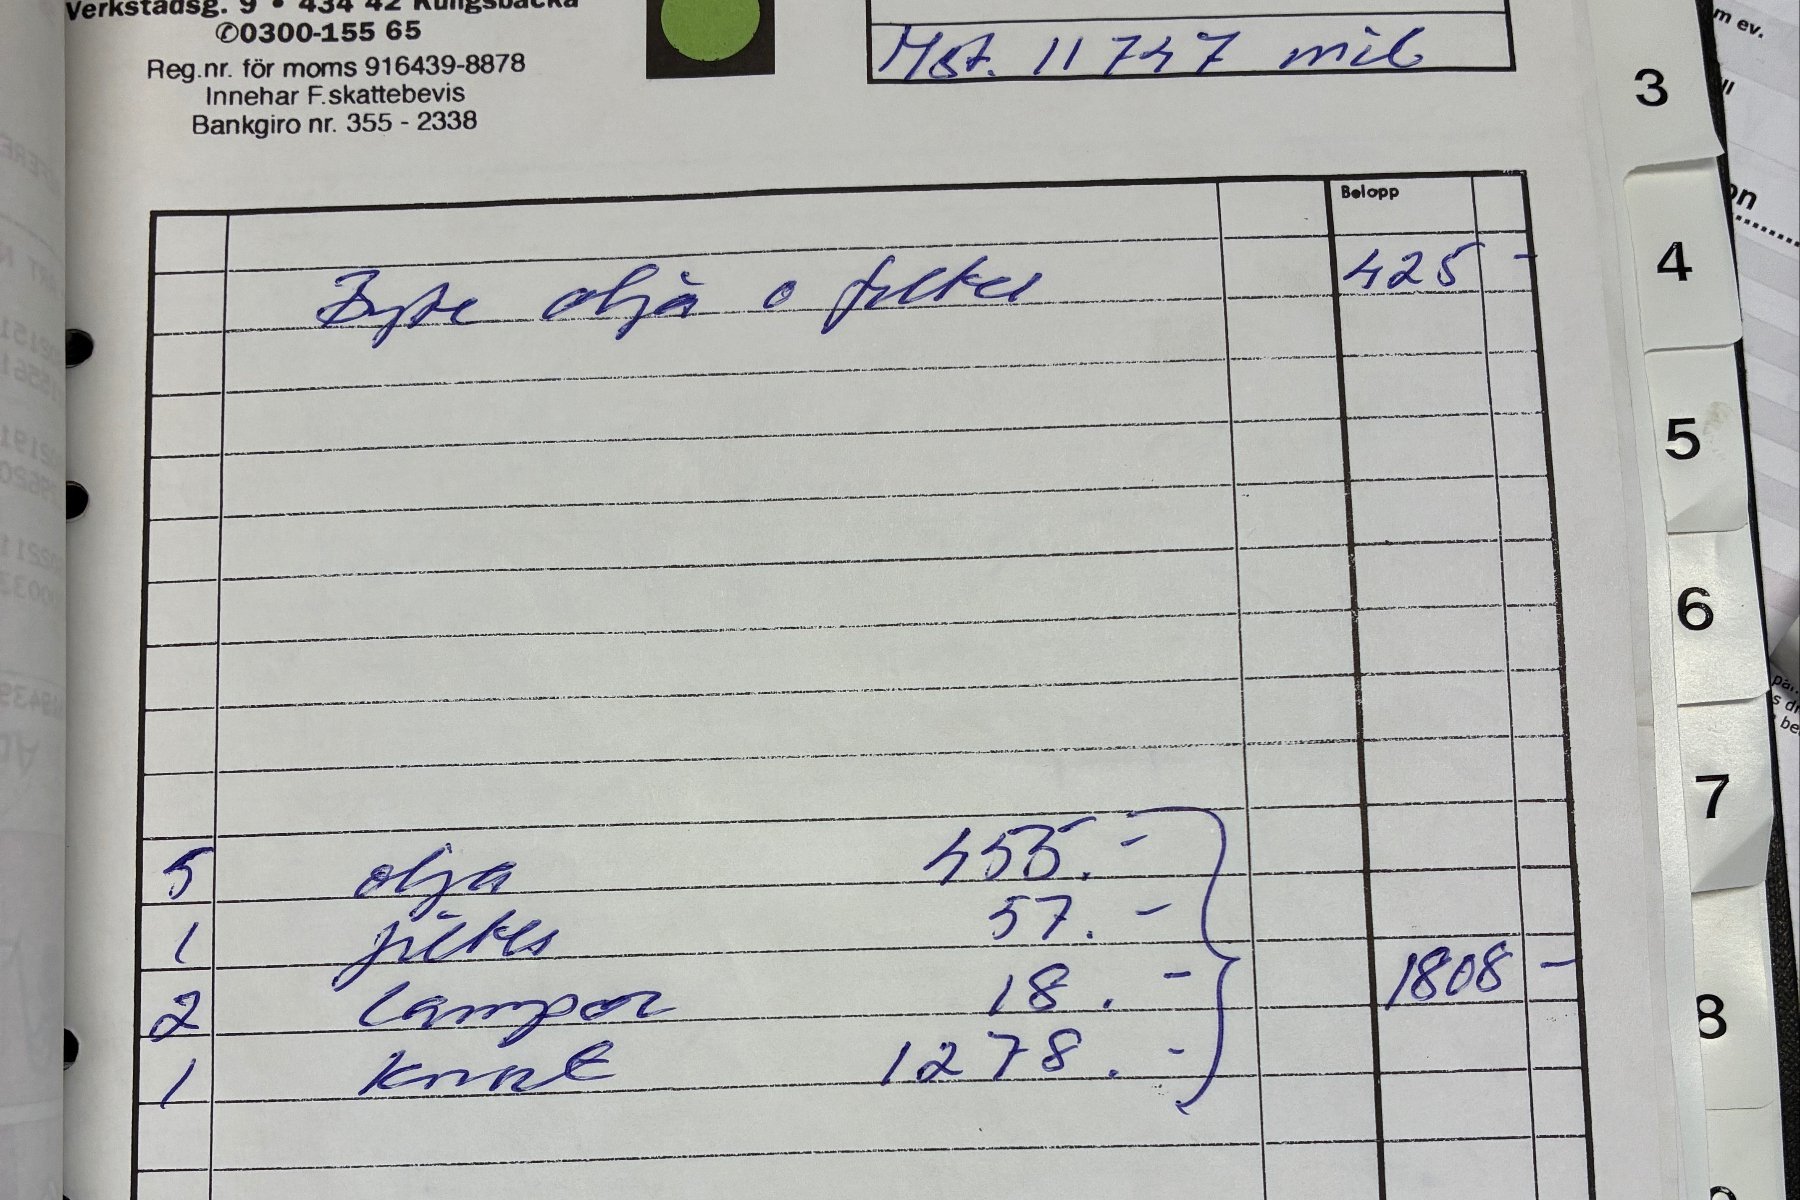 Verkstadsg. 9 • 434 42 Kungsbacka
✆0300-155 65
Reg.nr. för moms 916439-8878
Innehar F.skattebevis
Bankgiro nr. 355 - 2338
Mst. 11747 mil
Belopp
Byte olja o filter 425 -
5 olja 455.-
1 filter 57.-
2 lampor 18.-
1808 -
1 knut 1278.-
3
4
5
6
7
8
m ev.